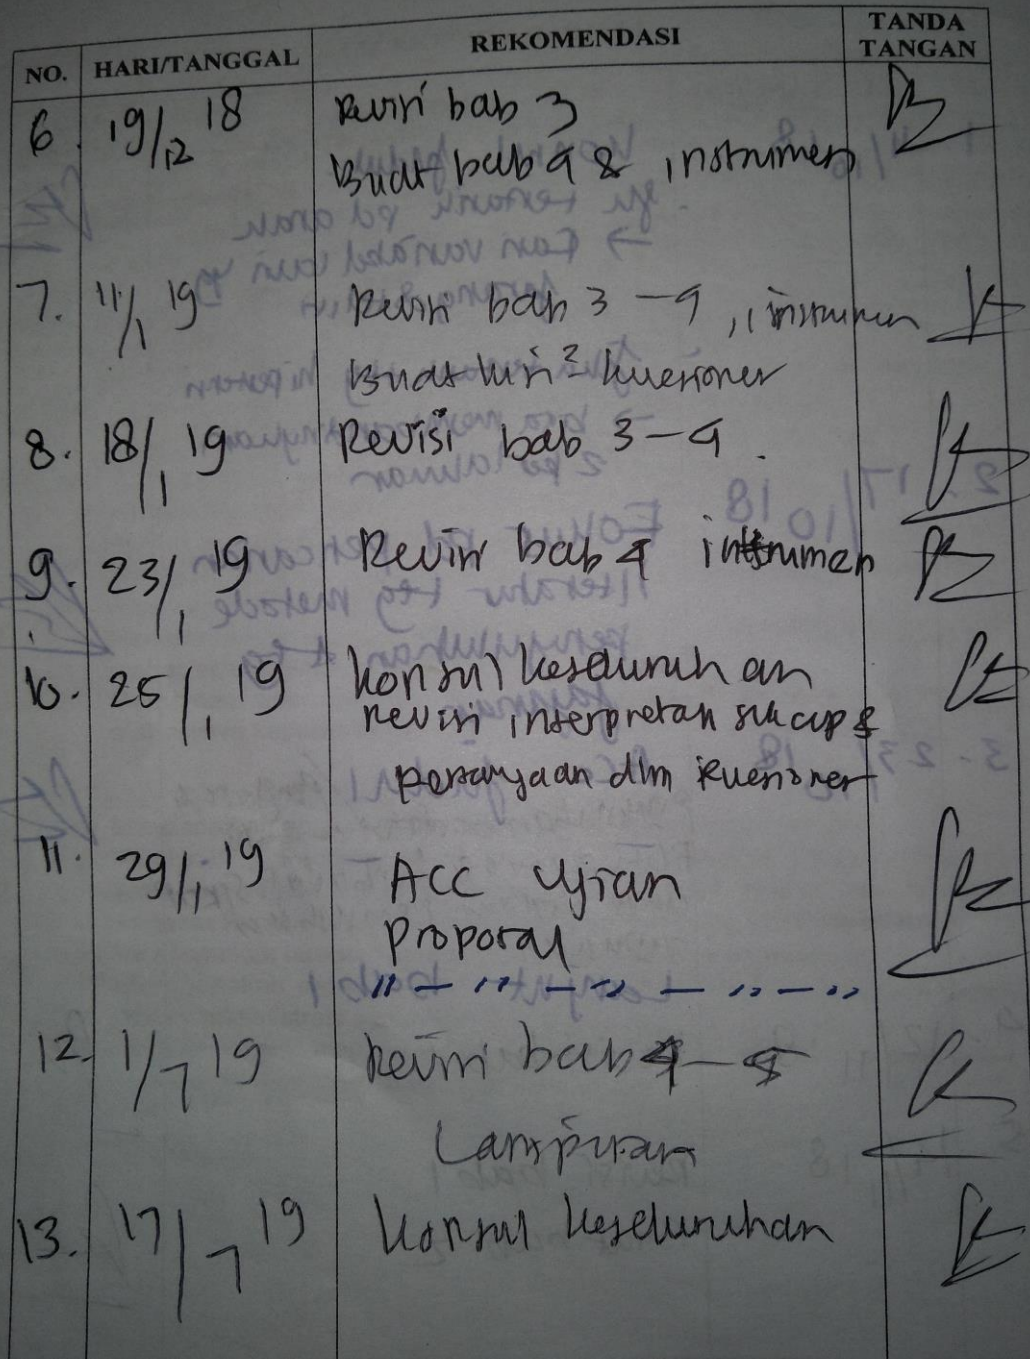 NO. HARI/TANGGAL REKOMENDASI TANDA TANGAN
6. 19/12 18 Revisi bab 3
Buat bab 4 & instrumen
7. 11/1 19 Revisi bab 3 - 4, instrumen
Buat kisi² kuesioner
8. 18/1 19 Revisi bab 3 - 4.
9. 23/1 19 Revisi bab 4 instrumen
10. 25/1, 19 Konsul keseluruhan
revisi interpretasi &
pertanyaan dlm kuesioner
11. 29/1, 19 ACC Ujian
Proposal
" - " - " - " - "
12. 1/7 19 Revisi bab 4 - 5
Lampiran
13. 17/7 19 Konsul keseluruhan